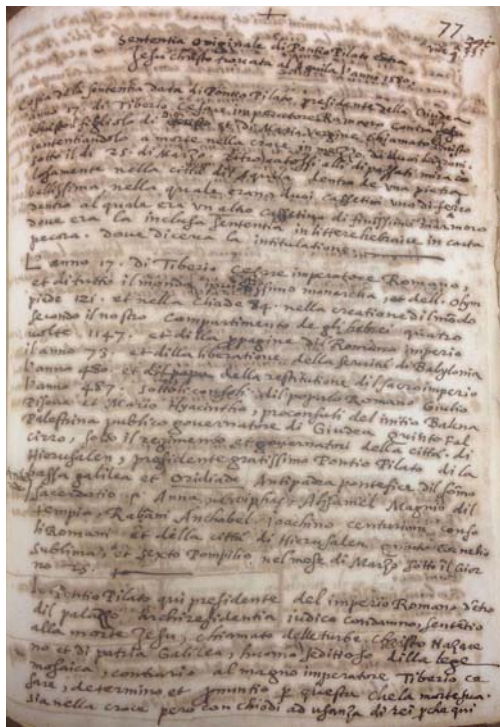 77
Sententia Originale di Pontio Pilato contra
Jesu christo trovata al Aquila l'anno 1580.
Copia della sententia data di Pontio Pilato, presidente della Giudea
anno 17. di Tiberio Cesare imperatore Romano contra
christo figliolo di et di Maria Vergine chiamato Christo
sententiandolo a morte nella croce in mezzo di duoi ladroni
sotto il di 25. di Marzo. passati miraco
losamente nella città del Aquila dentro de una pietra
bellissima, nella quale erano duoi cassettini uno di ferro
dentro al quale era un altro cassettino di finissimo marmoro
dove era la inclusa sententia in littere hebraice in carta
pecora. dove diceva la intitulatione
L'anno 17. di Tiberio Cesare imperatore Romano,
et di tutto il mondo monarcha, et dell. Olym
piade 121. et nella Eliade 84. nella creatione dil modo
secondo il nostro Compartimento de gli hebrei quatro
volte 1147. et dilla propagine dil Romano imperio
l'anno 73. et dilla liberatione della servitù di Babylonia
l'anno 480. et della restitutione dil sacro imperio
l'anno 487. sotto li consoli dil populo Romano Giulio
Pisano et Mario Hyacinthio, proconsuli del initio Balena
Palestina publico governatore di Giudea quinto Fal
cirro, sotto il regimento et governatori della città di
Hierusalen, presidente gratissimo Pontio Pilato di la
bassa galilea et Antipadra pontefice dil
sacerdotio Anna Alisamel Magnio dil
tempio, Rabani Anchabel Joachino centurion, consu
li Romani et della città di Hierusalen Quinto Cornelio
Sublima, et Sexto Pompilio nel mese di Marzo sotto il Gior
no 25.
Io Pontio Pilato qui presidente del imperio Romano detro
dil palazzo Archiresidentia iudico condamno, sententio
alla morte Jesu, chiamato delle turbe Christo Nazare
no et di patria Galilea, huomo seditioso dilla lege
mosaica, contrario al magno imperatore Tiberio Ce
sare, determino et pronuntio questa che la morte sua
sia nella croce però con chiodi ad usanza di rei qui